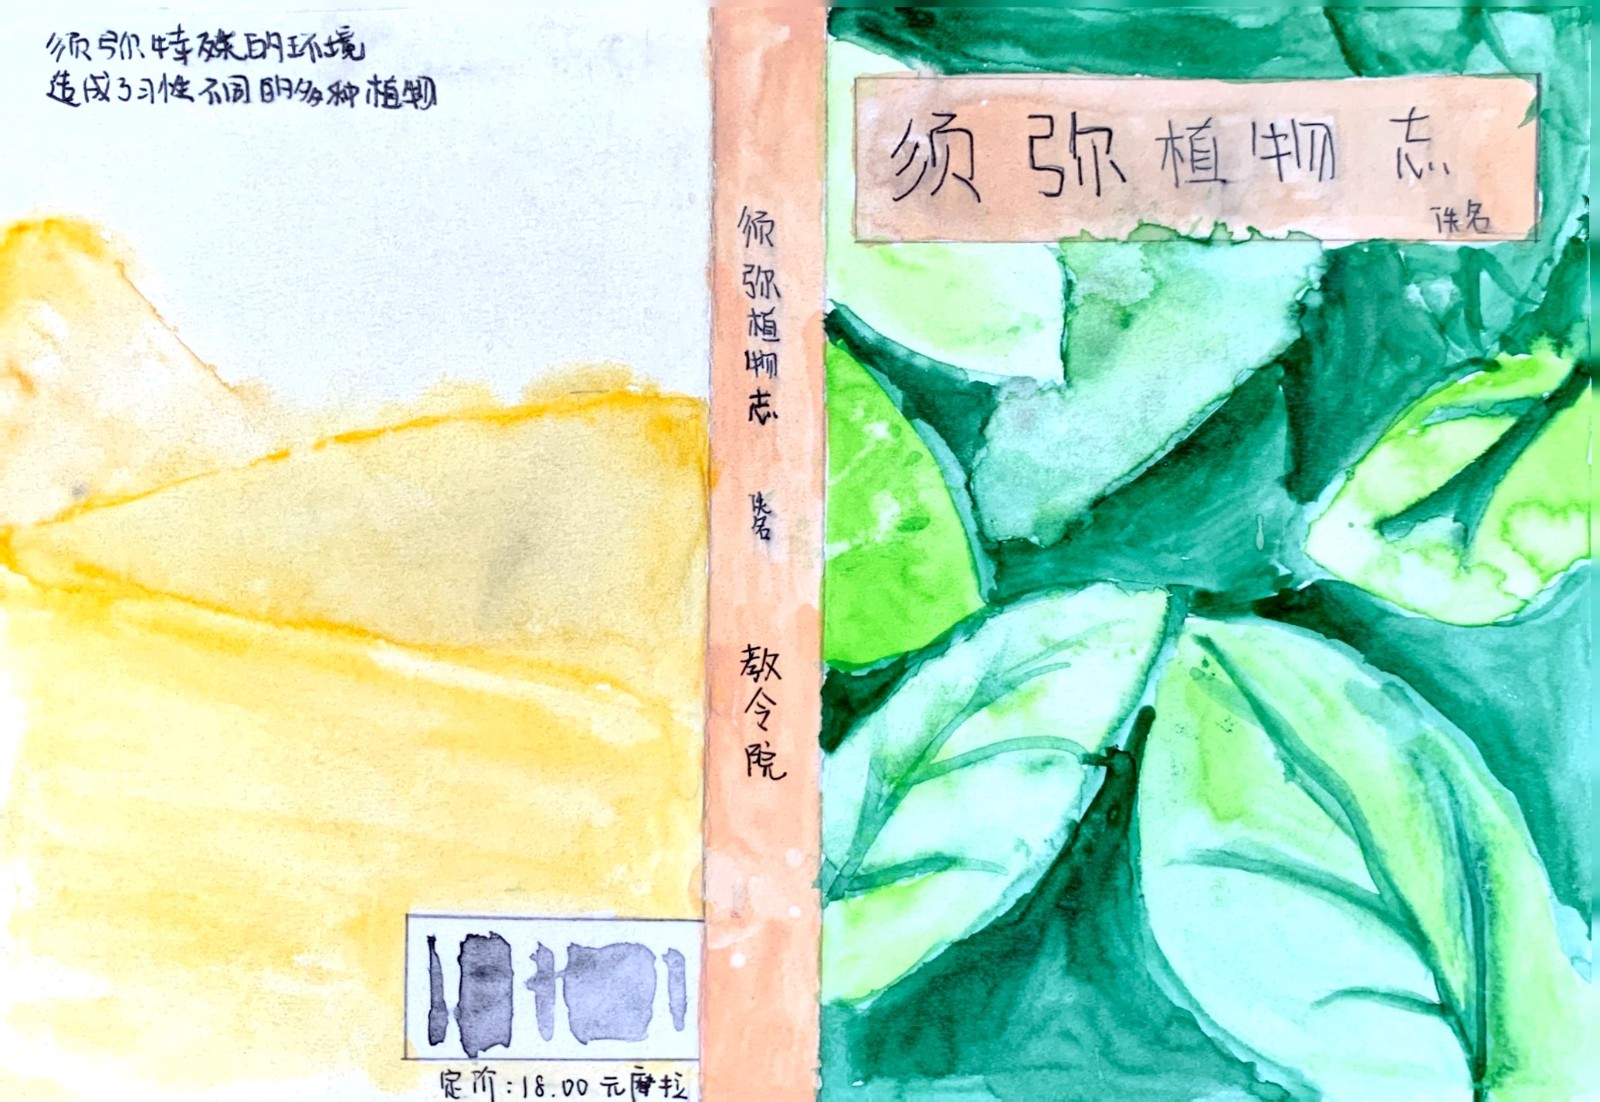 须弥特殊的环境
造成了习性不同的多种植物
定价:18.00元摩拉
须弥植物志
佚名
教令院
须弥植物志
佚名